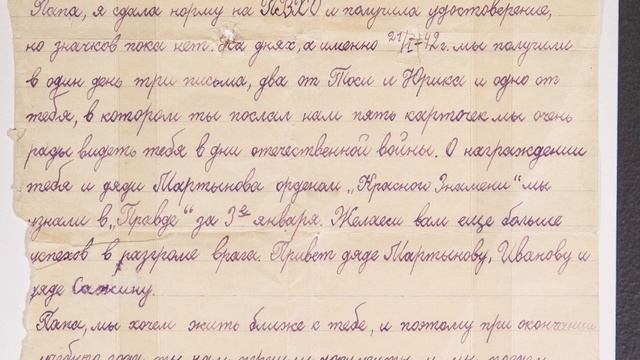 Папа, я сдала норму на ПВХО и получила удостоверение,
но значков пока нет. На днях, а именно 21/I-42г. мы получили
в один день три письма, два от Тоси и Юрика и одно от
тебя, в котором ты послал нам пять карточек мы очень
рады видеть тебя в дни отечественной войны. О награждении
тебя и дяди Мартынова орденом „Красного Знамени" мы
узнали в „Правде" за 3е января. Желаем вам еще больше
успехов в разгроме врага. Привет дяде Мартынову, Иванову и
дяде Сажину.
Папа, мы хотим жить ближе к тебе, и поэтому при окончании
учебного года ты нам пришли документы и мы поедем